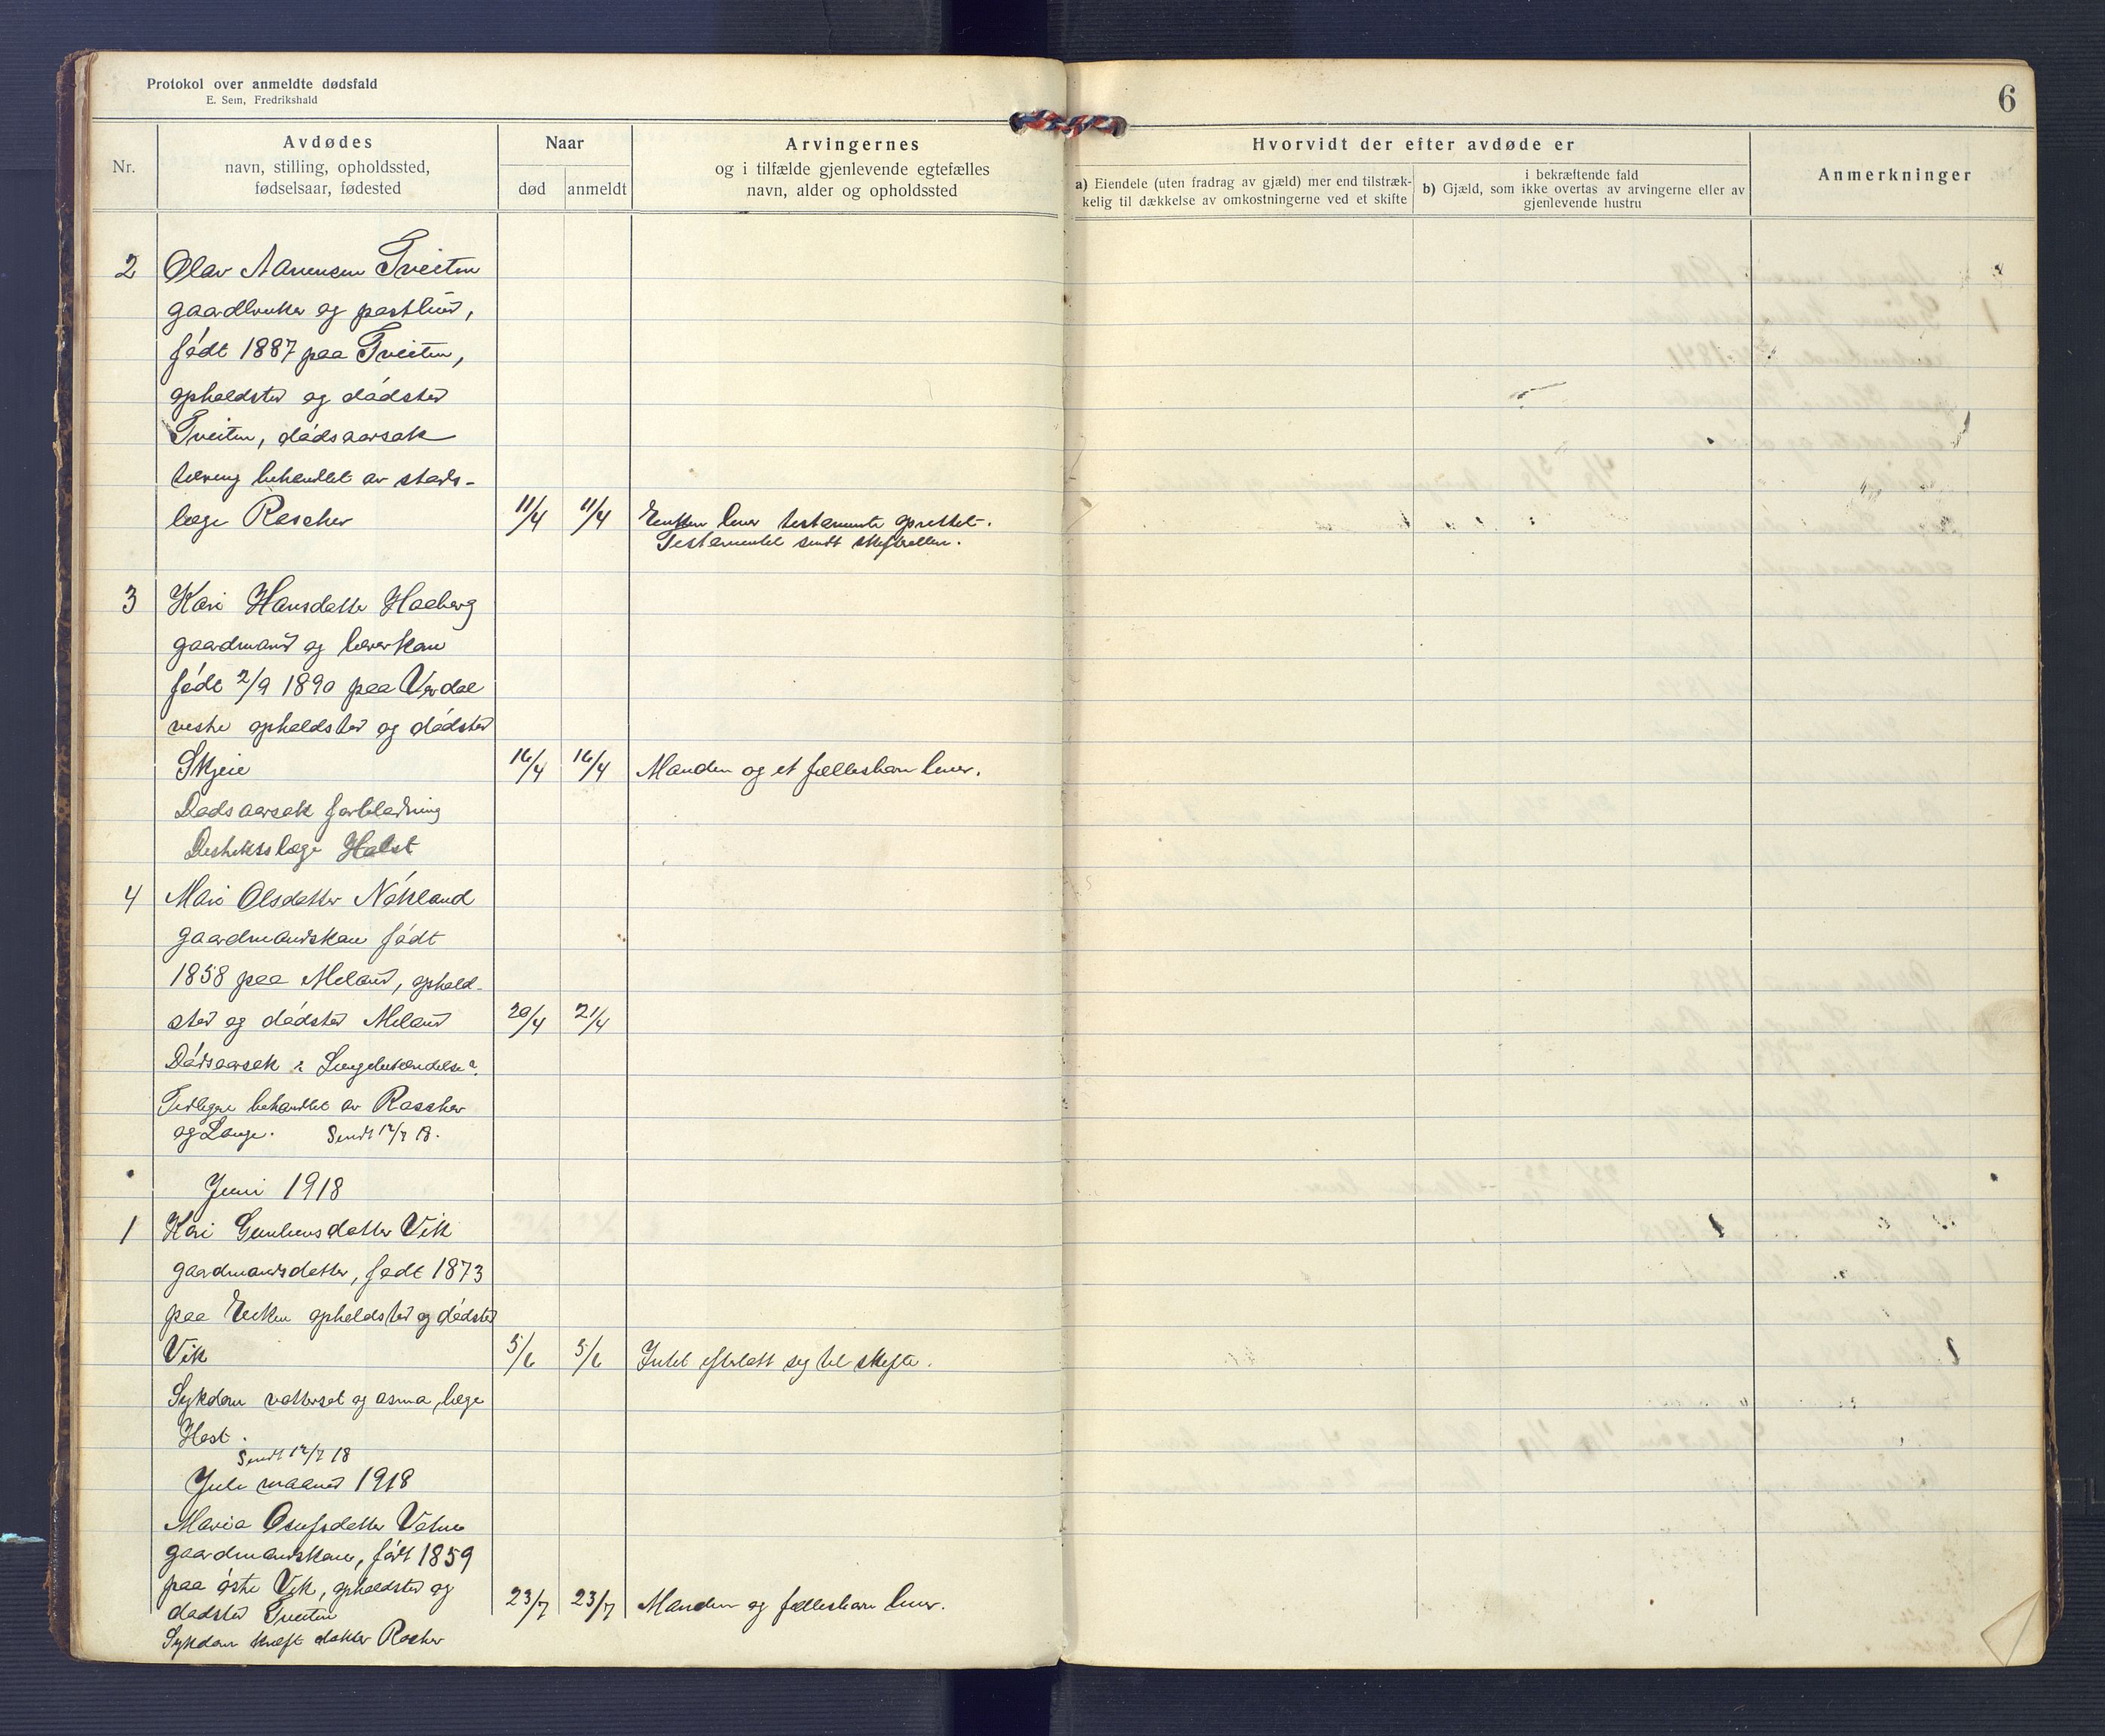 Protokol over anmeldte dødsfald
E. Sem, Fredrikshald
6
Nr.
Avdødes
navn, stilling, opholdssted,
fødselsaar, fødested
Naar
død
anmeldt
Arvingernes
og i tilfælde gjenlevende egtefælles
navn, alder og opholdssted
Hvorvidt der efter avdøde er
a) Eiendele (uten fradrag av gjæld) mer end tilstræk-
kelig til dækkelse av omkostningerne ved et skifte
i bekræftende fald
b) Gjæld, som ikke overtas av arvingerne eller av
gjenlevende hustru
Anmerkninger
2 Olav Aanensen Tveiten
gaardbruker og
født 1887 paa Tveiten,
opholdsted og dødsted
Tveiten, dødsaarsak
tæring behandlet av stads-
læge Rascher 11/4 11/4 Enken lever testamente oprettet.
Testamentet sendt skifteretten.
3 Kari Hansdatter Haaberg
gaardmand og
født 2/9 1890 paa Verdal
vestre opholdsted og dødsted
Skjeie 16/4 16/4 Manden og et fællesbarn lever.
Dødsaarsak forblødning
Distriktslæge Holst
4 Mari Olsdatter
gaardmandskone født
1858 paa Meland, ophold-
sted og dødsted Meland 20/4 21/4
Dødsaarsak: Lungebetændelse?
Tidligere behandlet av Rascher
og Lange. Sendt 12/7 18.
Juni 1918
1 Kari Gunleiksdatter Vik
gaardmandsdatter, født 1873
paa opholdsted og dødsted
Vik 5/6 5/6 Intet efterlatt seg til skifte.
Sykdom vattersot og asma, læge
Høst.
Sendt 12/7 18
Juli maaned 1918
Maria Osufsdatter Vatne
gaardmandskone, født 1859
paa østre Vik, opholdsted og 23/7 23/7 Manden og fællesbarn lever.
dødsted Tveiten
Sykdom kræft doktor Rascher